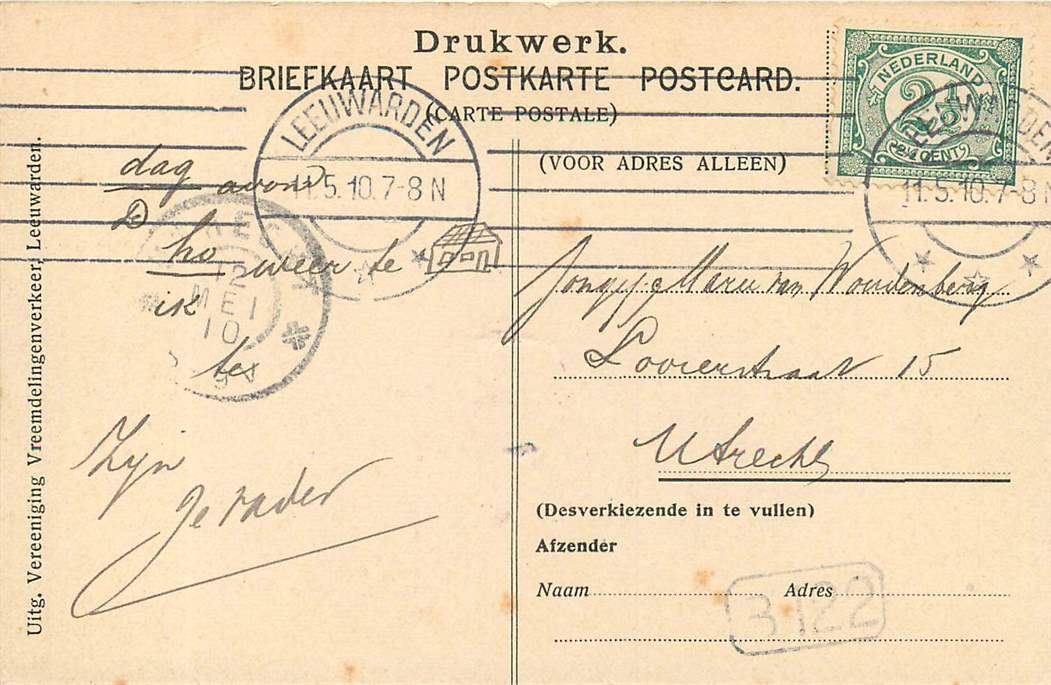 Drukwerk.
BRIEFKAART POSTKARTE POSTCARD.
(CARTE POSTALE)
(VOOR ADRES ALLEEN)
NEDERLAND
2½
2½ CENT
LEEUWARDEN
11.5.10.7-8N
LEEUWARDEN
11.5.10.7-8N
12
MEI
10
dag avond
ho weer te
ik
te
Zijn
Je vader
Uitg. Vereeniging Vreemdelingenverkeer, Leeuwarden.
Jongej. Marie van Woudenberg
Looierstraat 15
Utrecht
(Desverkiezende in te vullen)
Afzender
Naam Adres
3122